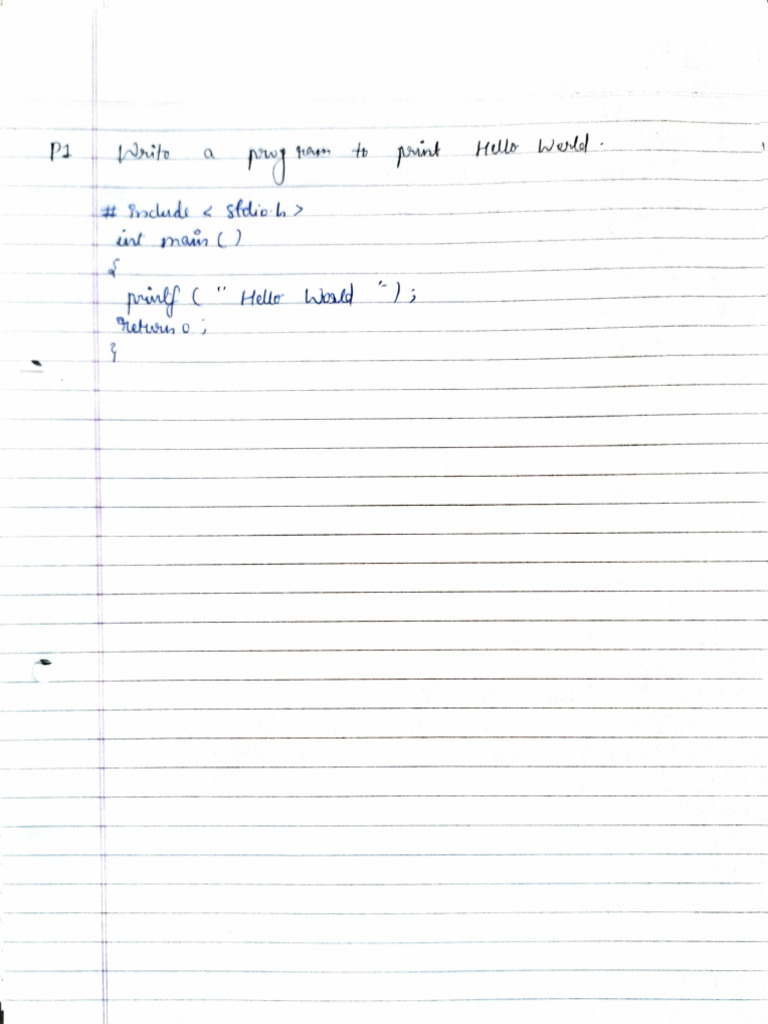 P1 Write a program to print Hello World.
# include < stdio.h >
int main ( )
{
printf ( " Hello World " ) ;
return 0 ;
}